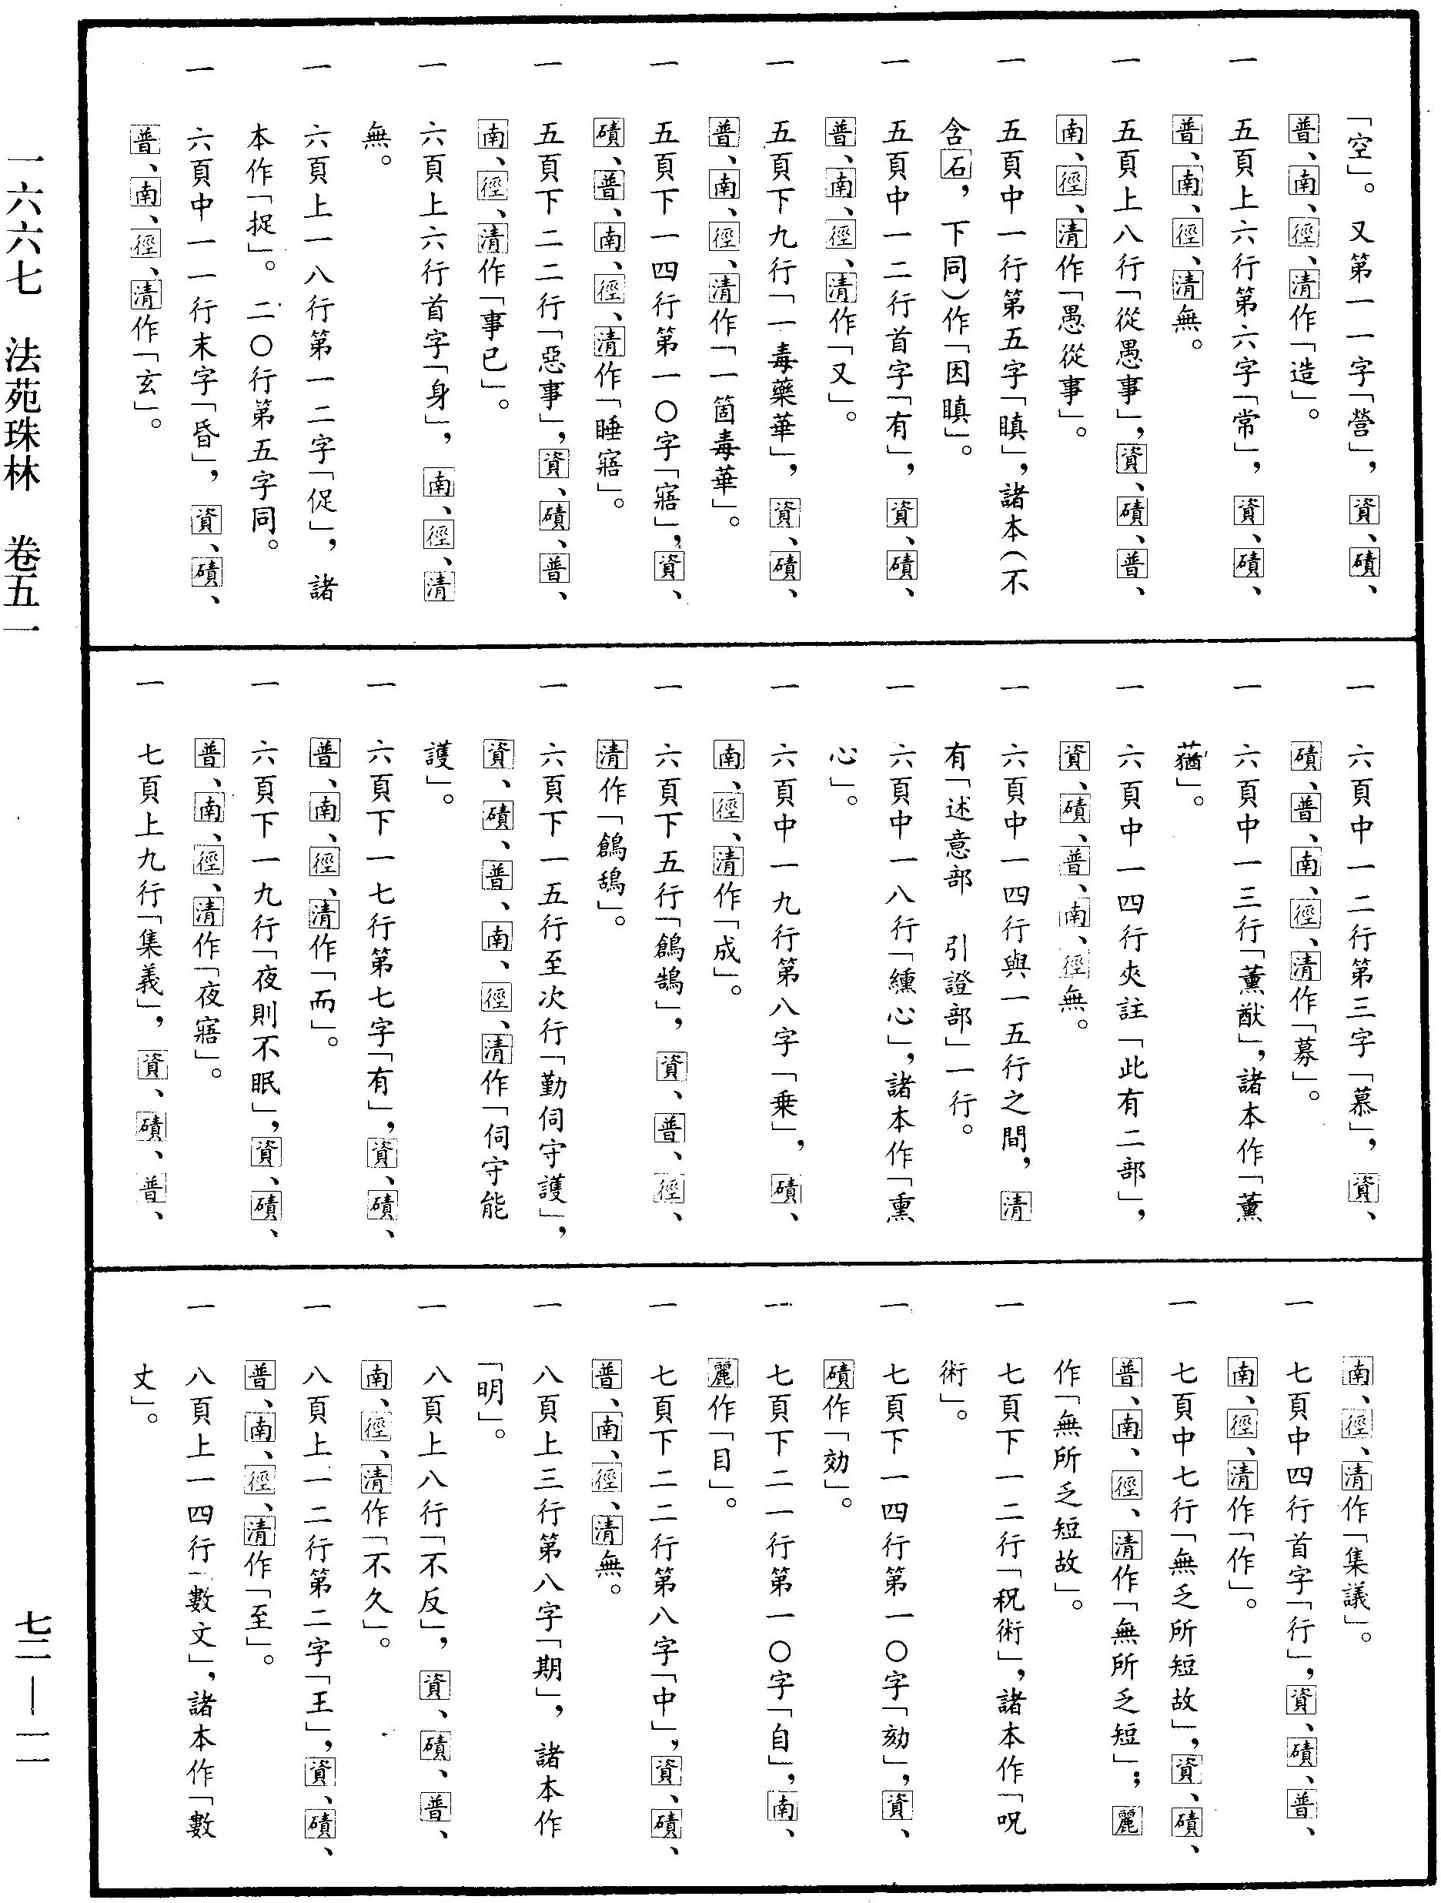 一六六七　法苑珠林　卷五一
七二—一一
「空」。又第一一字「營」，資、磧、
普、南、徑、清作「造」。
一　五頁上六行第六字「常」，資、磧、
普、南、徑、清無。
一　五頁上八行「從愚事」，資、磧、普、
南、徑、清作「愚從事」。
一　五頁中一行第五字「瞋」，諸本（不
含石，下同）作「因瞋」。
一　五頁中一二行首字「有」，資、磧、
普、南、徑、清作「又」。
一　五頁下九行「一毒藥華」，資、磧、
普、南、徑、清作「一箇毒華」。
一　五頁下一四行第一〇字「寤」，資、
磧、普、南、徑、清作「睡寤」。
一　五頁下二二行「惡事」，資、磧、普、
南、徑、清作「事已」。
一　六頁上六行首字「身」，南、徑、清
無。
一　六頁上一八行第一二字「促」，諸
本作「捉」。二〇行第五字同。
一　六頁中一一行末字「昏」，資、磧、
普、南、徑、清作「玄」。
一　六頁中一二行第三字「慕」，資、
磧、普、南、徑、清作「募」。
一　六頁中一三行「薰猷」，諸本作「薰
蕕」。
一　六頁中一四行夾註「此有二部」，
資、磧、普、南、徑無。
一　六頁中一四行與一五行之間，清
有「述意部　引證部」一行。
一　六頁中一八行「纁心」，諸本作「熏
心」。
一　六頁中一九行第八字「乘」，磧、
南、徑、清作「成」。
一　六頁下五行「鶬鵠」，資、普、徑、
清作「鶬鴰」。
一　六頁下一五行至次行「勤伺守護」，
資、磧、普、南、徑、清作「伺守能
護」。
一　六頁下一七行第七字「有」，資、磧、
普、南、徑、清作「而」。
一　六頁下一九行「夜則不眠」，資、磧、
普、南、徑、清作「夜寤」。
一　七頁上九行「集義」，資、磧、普、
南、徑、清作「集議」。
一　七頁中四行首字「行」，資、磧、普、
南、徑、清作「作」。
一　七頁中七行「無乏所短故」，資、磧、
普、南、徑、清作「無所乏短」；麗
作「無所乏短故」。
一　七頁下一二行「祝術」，諸本作「呪
術」。
一　七頁下一四行第一〇字「効」，資、
磧作「効」。
一　七頁下二一行第一〇字「自」，南、
麗作「目」。
一　七頁下二二行第八字「中」，資、磧、
普、南、徑、清無。
一　八頁上三行第八字「期」，諸本作
「明」。
一　八頁上八行「不反」，資、磧、普、
南、徑、清作「不久」。
一　八頁上一二行第二字「王」，資、磧、
普、南、徑、清作「至」。
一　八頁上一四行「數文」，諸本作「數
丈」。